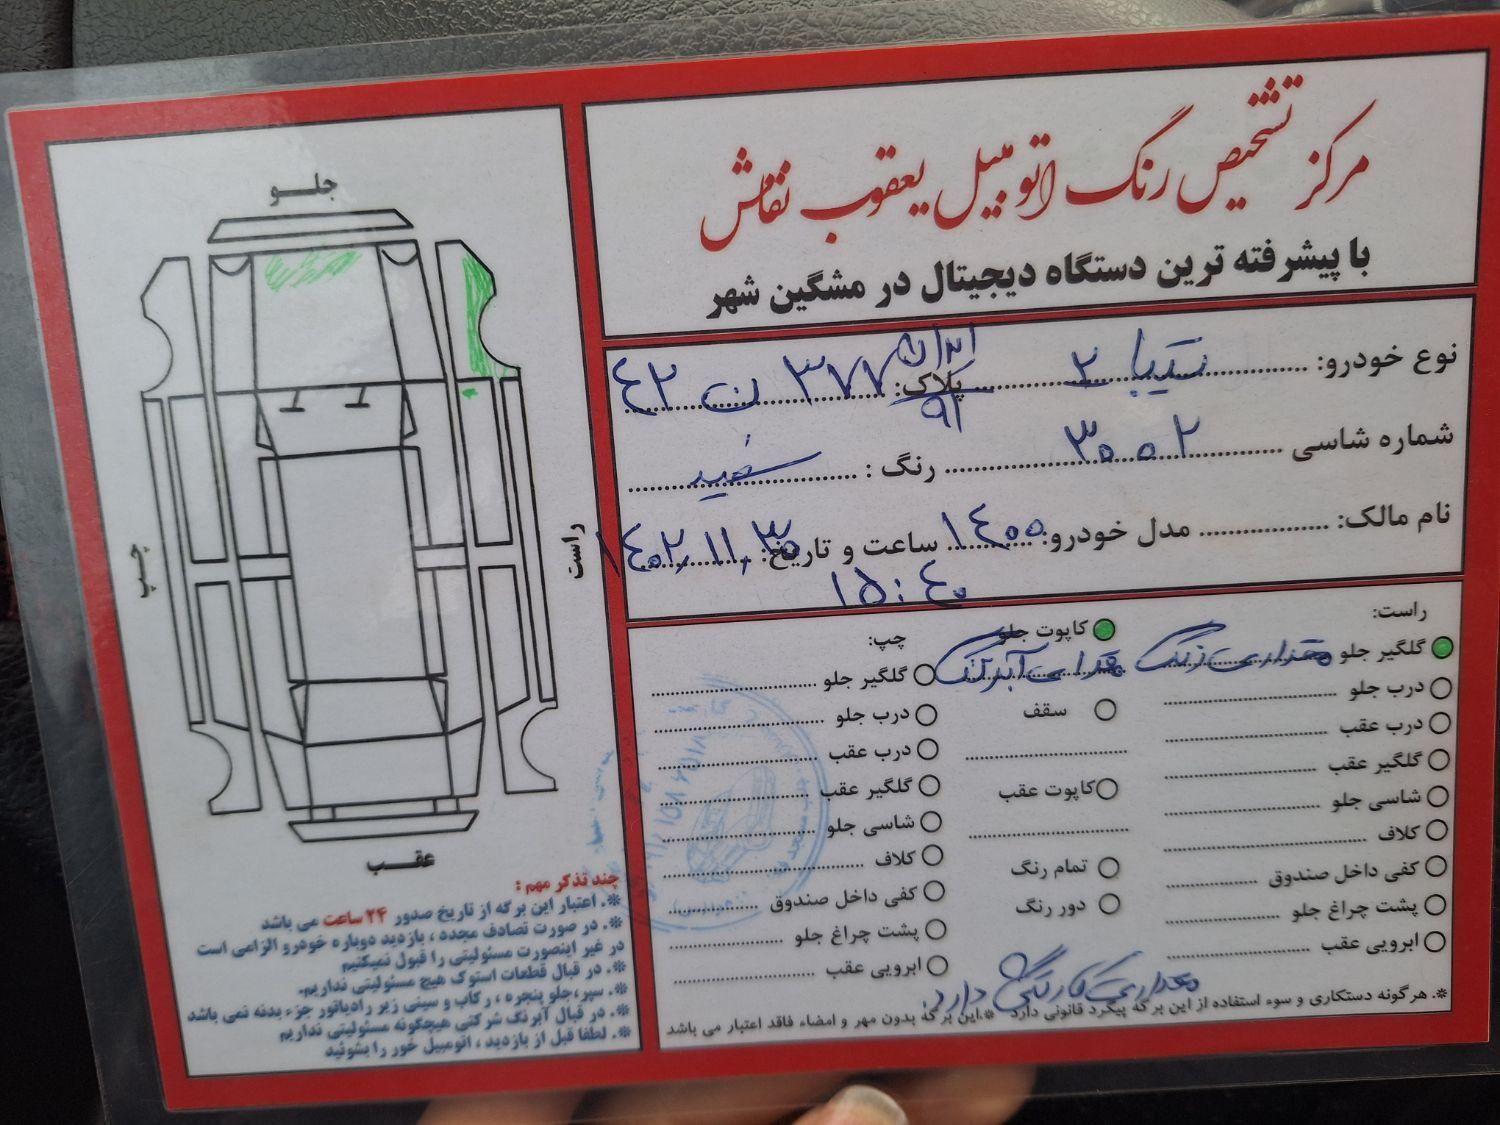 مرکز تشخیص رنگ اتومبیل یعقوب نقاش
با پیشرفته ترین دستگاه دیجیتال در مشگین شهر
نوع خودرو: تیبا ۲ پلاک: ۴۲ ن ۳۷۷ ایران ۹۱
شماره شاسی ۳۰۰۲ رنگ : سفید
نام مالک: مدل خودرو: ۱۴۰۰ ساعت و تاریخ: ۱۴۰۲,۱۱,۳۰
۱۵:۴۰
راست:
گلگیر جلو مقداری رنگ
درب جلو
درب عقب
گلگیر عقب
شاسی جلو
کلاف
کفی داخل صندوق
پشت چراغ جلو
ابرویی عقب
کاپوت جلو
مقداری آبرنگ
سقف
کاپوت عقب
تمام رنگ
دور رنگ
چپ:
گلگیر جلو
درب جلو
درب عقب
گلگیر عقب
شاسی جلو
کلاف
کفی داخل صندوق
پشت چراغ جلو
ابرویی عقب
دارد.
*. هرگونه دستکاری و سوء استفاده از این برگه پیگرد قانونی دارد *.این برگه بدون مهر و امضاء فاقد اعتبار می باشد
جلـــو
چپ
راست
عقـــب
چند تذکر مهم :
*. اعتبار این برگه از تاریخ صدور ۲۴ ساعت می باشد
*. در صورت تصادف مجدد ، بازدید دوباره خودرو الزامی است
در غیر اینصورت مسئولیتی را قبول نمیکنیم
*. در قبال قطعات استوک هیچ مسئولیتی نداریم.
*. سپر،جلو پنجره ، رکاب و سینی زیر رادیاتور جزء بدنه نمی باشد
*. در قبال آبرنگ شرکتی هیچگونه مسئولیتی نداریم
*. لطفا قبل از بازدید ، اتومبیل خور را بشوئید